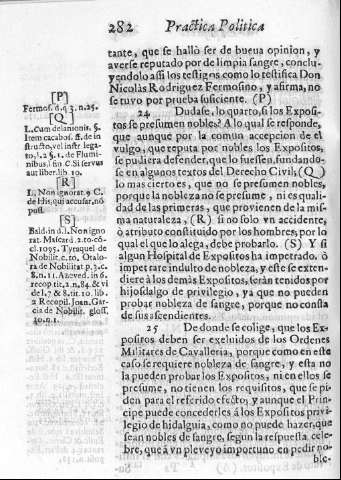 282 Practica Politica
tante, que se hallò ser de bueua opinion, y
averse reputado por de limpia sangre, conclu-
yendolo assi los testigos como lo testifica Don
Nicolàs Rodriguez Fermosino, y afirma, no
se tuvo por prueba suficiente. (P)
24 Dudase, lo quarto, si los Exposi-
tos se presumen nobles? A lo qual se responde,
que aunque por la comun accepcion de el
vulgo, que reputa por nobles los Expositos,
se pudiera defender, que lo fuessen, fundando-
se en algunos textos del Derecho Civil, (Q)
lo mas cierto es, que no se presumen nobles,
porque la nobleza no se presume, ni es quali-
dad de las primeras, que provienen de la mis-
ma naturaleza, (R) si no solo vn accidente,
ò atributo constituido por los hombres, por lo
qual el que lo alega, debe probarlo. (S) Y si
algun Hospital de Expositos ha impetrado, ò
impetrare indulto de nobleza, y este se exten-
diere à los demàs Expositos, seràn tenidos por
hijosdalgo de privilegio, ya que no pueden
probar nobleza de sangre, porque no consta
de sus ascendientes.
25 De donde se colige, que los Ex-
positos deben ser excluidos de los Ordenes
Militares de Cavalleria, porque como en este
caso se requiere nobleza de sangre, y esta no
la pueden probar los Expositos, ni en ellos se
presume, no tienen los requisitos, que se pi-
den para el referido efecto; y aunque el Prin-
cipe puede concederles à los Expositos privi-
legio de hidalguia, como no puede hazer, que
sean nobles de sangre, segun la respuesta cele-
bre, que à vn plebeyo importuno en pedir no-
[P]
Fermos. d. q. 3. n. 25.
[Q]
L. Cum delanionis. §.
Irem cacabos. ff. de in
structo, vel instr. lega-
to, l. 2 §. 1. de Flumi-
nibus, l. fin C. Si servus
aut liber. lib. 10.
[R]
L. Non ignorat. 9 C.
de His, qui accusar, nō
poss.
[S]
Bald. in d. l. Non igno
rat. Mascard. 2. to. cō-
cl. 1095. Tyraquel de
Nobilit. c. 10. Otalo-
ra de Nobilitat p. 3. c.
8. n. 11. Azeved. in 6.
recop. tit. 2. n. 84. & vi
de l. 7 & 8. tit. 10. lib.
2 Recopil. Joan. Gar-
cia de Nobilit. gloss.